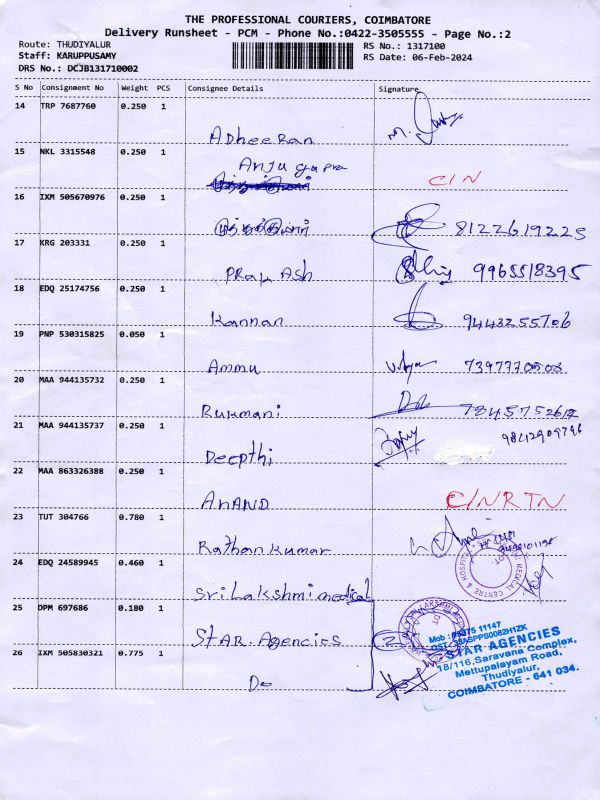 THE PROFESSIONAL COURIERS, COIMBATORE
Delivery Runsheet - PCM - Phone No.:0422-3505555 - Page No.:2
Route: THUDIYALUR
Staff: KARUPPUSAMY
DRS No.: DCJB131710002
RS No.: 1317100
RS Date: 06-Feb-2024
S No Consignment No Weight PCS Consignee Details Signature
14 TRP 7687760 0.250 1
Adheeran
15 NKL 3315548 0.250 1
Anju gupra
C/N
16 IXM 505670976 0.250 1
8122619225
17 KRG 203331 0.250 1
PRAKASh 9965518395
18 EDQ 25174756 0.250 1
Kannan 9443255706
19 PNP 530315825 0.050 1
Ammu 7397770508
20 MAA 944135732 0.250 1
Rukmani
21 MAA 944135737 0.250 1
Deepthi
22 MAA 863326388 0.250 1
ANAND C/N RTN
23 TUT 304766 0.780 1
Rathan kumar
24 EDQ 24589945 0.460 1
Sri Lakshmi medical
MEDICAL CENTRE & HOSPITAL
25 DPM 697686 0.180 1
StAR. Agencies 2
26 IXM 505830321 0.775 1
Do
STAR AGENCIES
18/116, Saravana Complex,
Mettupalayam Road,
Thudiyalur,
COIMBATORE - 641 034.